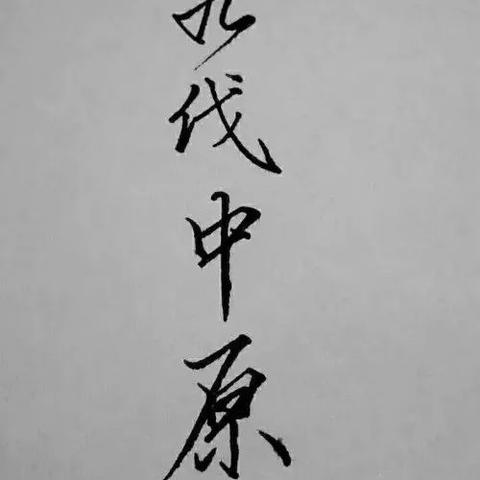 伐中原